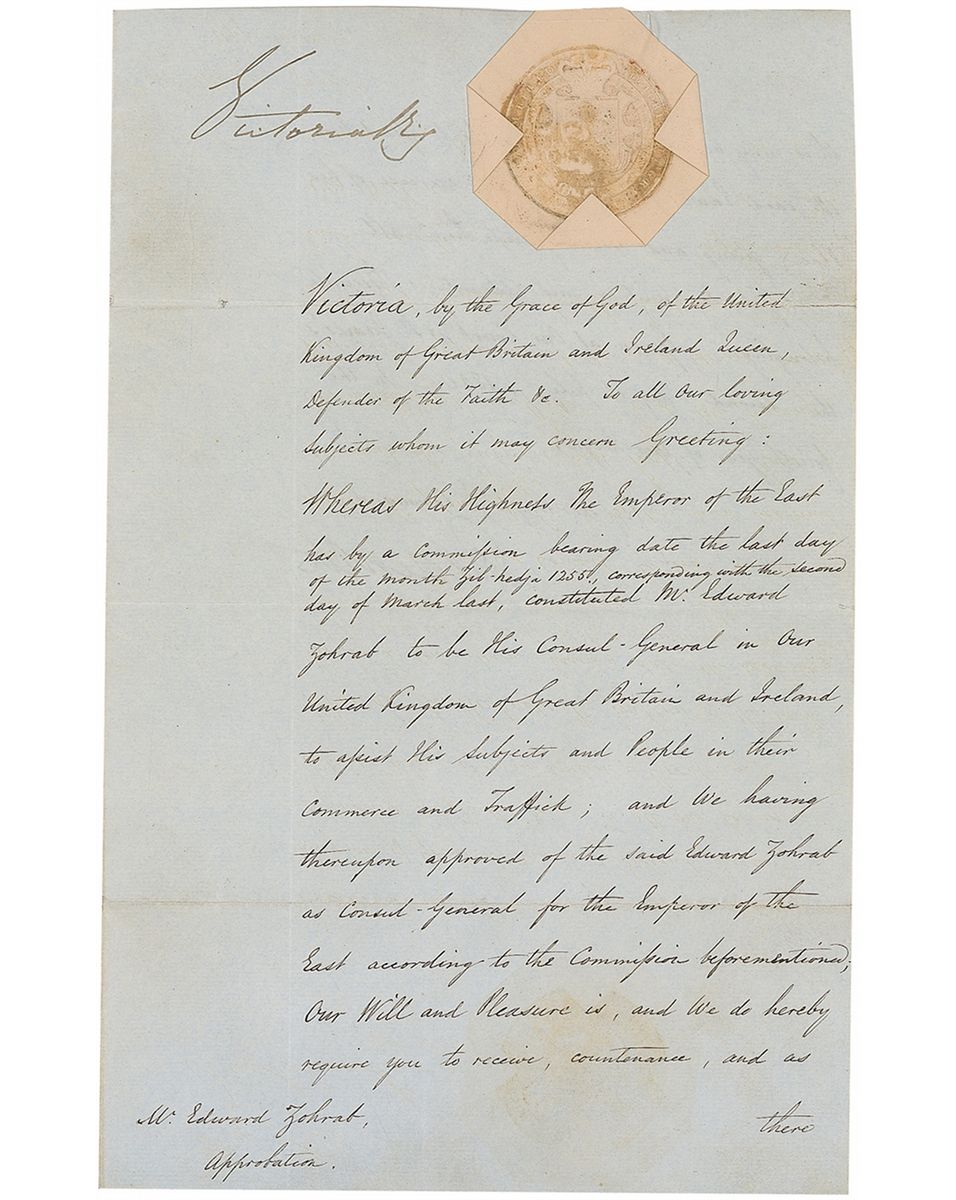 Victoria R
Victoria, by the Grace of God, of the United
Kingdom of Great Britain and Ireland Queen,
Defender of the Faith &c. To all Our loving
Subjects whom it may concern Greeting:
Whereas His Highneſs The Emperor of the East
has by a Commiſsion bearing date the last day
of the month Zil-hedja 1255, corresponding with the second
day of March last, constituted Mr. Edward
Zohrab to be His Consul-General in Our
United Kingdom of Great Britain and Ireland,
to aſsist His Subjects and People in their
Commerce and Traffick; and We having
thereupon approved of the said Edward Zohrab
as Consul-General for the Emperor of the
East according to the Commiſsion beforementioned;
Our Will and Pleasure is, and We do hereby
require you to receive, countenance, and as
there
Mr. Edward Zohrab,
Approbation.